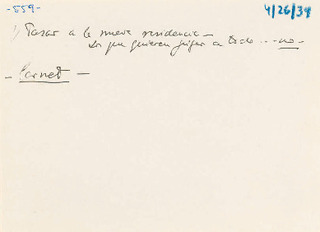 -559-
4/26/39
1) Pasar a la nueva residencia -
Los que quieran jugar a todo ... no -
- Carnet -